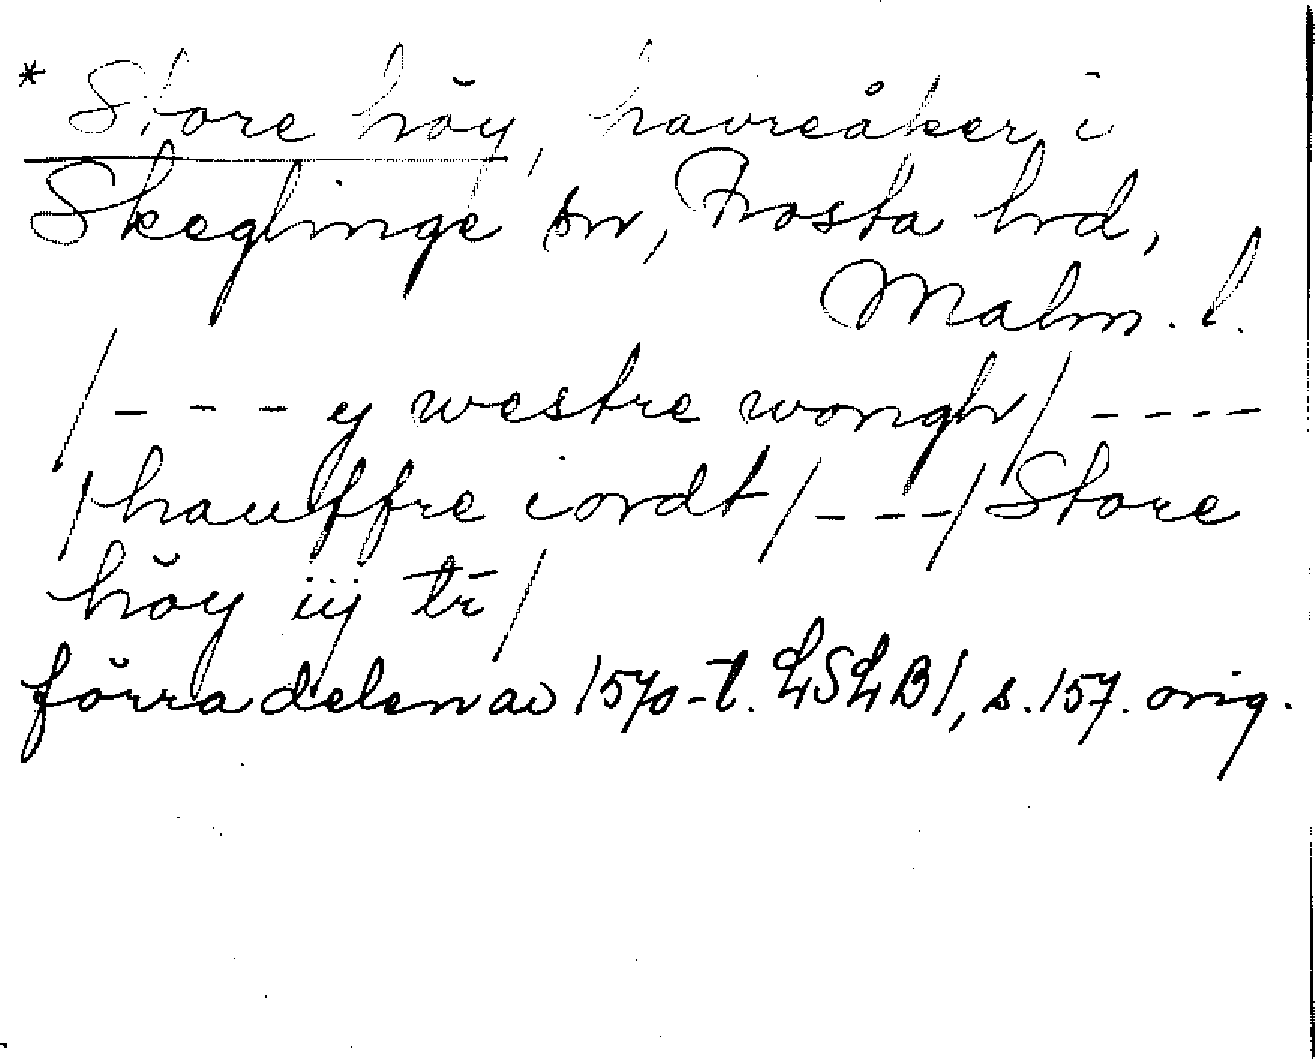 * Store höy, havreåker i
Skeglinge sn, Frosta hrd,
Malm. l.
/ - - - y westre wongh / - - - -
/ hauffre iordt / - - - / Store
höy iij tr /
förra delen av 1570-t. LSLB1, s. 157. orig.